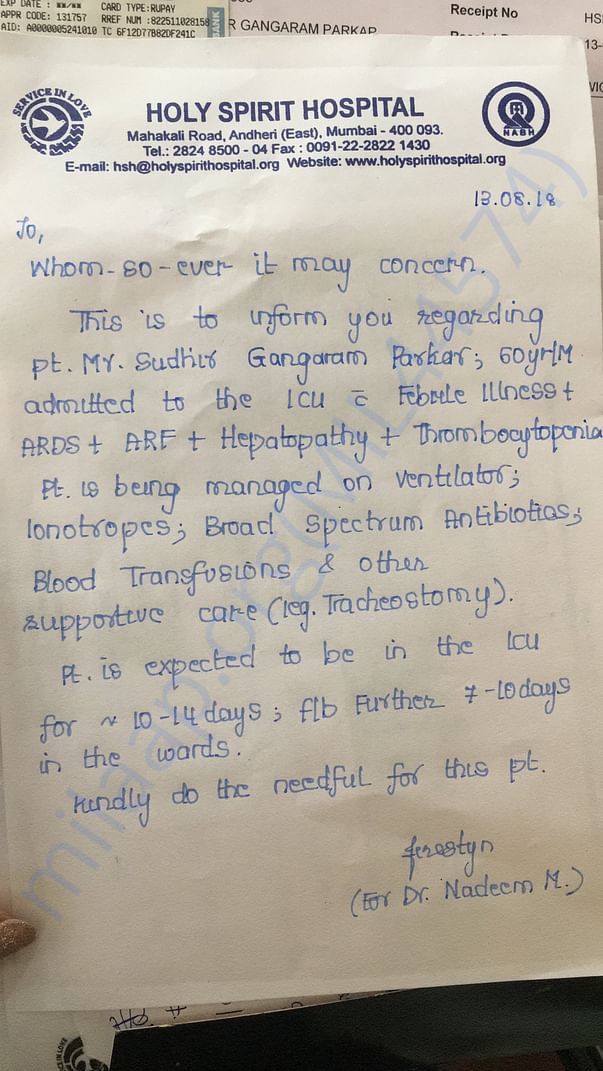 EXP DATE : xx/xx CARD TYPE:RUPAY
APPR CODE: 131757 RREF NUM :822511028158
AID: A0000005241010 TC 6F12D77B82DF241C
BANK
R GANGARAM PARKAR
Receipt No
HS
13-
SERVICE IN LOVE
HOLY SPIRIT HOSPITAL
Mahakali Road, Andheri (East), Mumbai - 400 093.
Tel.: 2824 8500 - 04 Fax : 0091-22-2822 1430
E-mail: hsh@holyspirithospital.org Website: www.holyspirithospital.org
NABH
13.08.18
To,
Whom-so-ever it may concern.
This is to inform you regarding
pt. Mr. Sudhir Gangaram Parkar; 60yr/M
admitted to the ICU c̄ Febrile Illness +
ARDS + ARF + Hepatopathy + Thrombocytopenia
Pt. is being managed on ventilator;
Ionotropes; Broad Spectrum Antibiotics;
Blood Transfusions & other
supportive care (eg. Tracheostomy).
Pt. is expected to be in the ICU
for ~ 10-14 days ; f/b Further 7-10 days
in the wards.
Kindly do the needful for this pt.
(For Dr. Nadeem M.)
milaap.org(MIL44574)